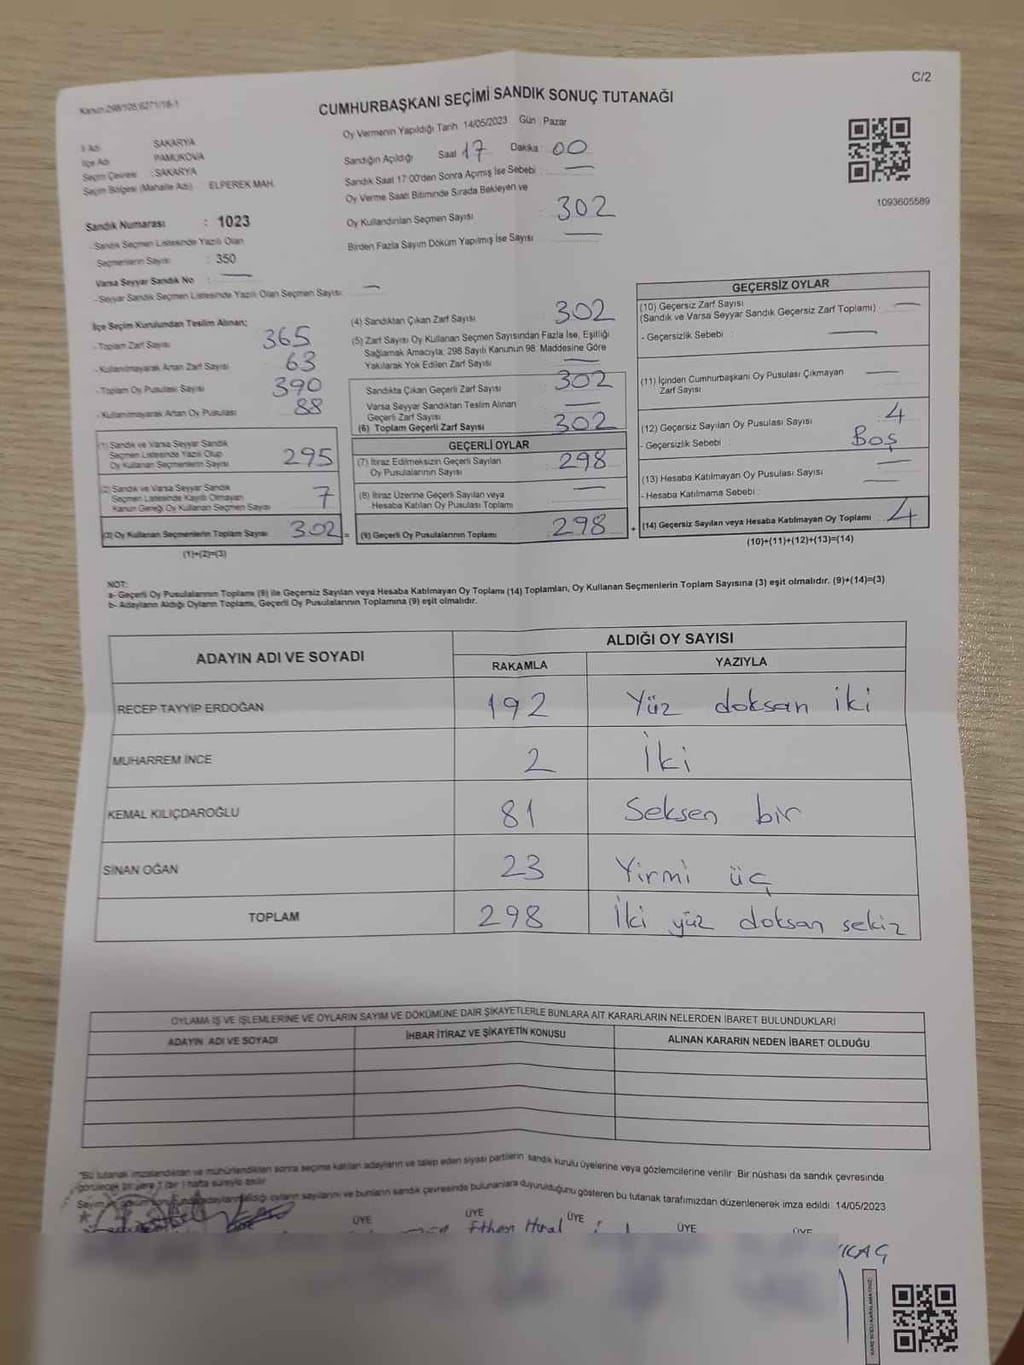 C/2
Kanun:298/105;6271/18-1
CUMHURBAŞKANI SEÇİMİ SANDIK SONUÇ TUTANAĞI
İl Adı SAKARYA
İlçe Adı PAMUKOVA
Seçim Çevresi : SAKARYA
Seçim Bölgesi (Mahalle Adı) : ELPEREK MAH.
Sandık Numarası : 1023
- Sandık Seçmen Listesinde Yazılı Olan
Seçmenlerin Sayısı : 350
Varsa Seyyar Sandık No : —
- Seyyar Sandık Seçmen Listesinde Yazılı Olan Seçmen Sayısı: —
Oy Vermenin Yapıldığı Tarih :14/05/2023 Gün : Pazar
Sandığın Açıldığı Saat 17 Dakika : 00
Sandık Saat 17:00'den Sonra Açılmış İse Sebebi : —
Oy Verme Saati Bitiminde Sırada Bekleyen ve
Oy Kullandırılan Seçmen Sayısı : 302
Birden Fazla Sayım Döküm Yapılmış İse Sayısı : —
1093605589
İlçe Seçim Kurulundan Teslim Alınan;
- Toplam Zarf Sayısı 365
- Kullanılmayarak Artan Zarf Sayısı 63
- Toplam Oy Pusulası Sayısı 390
- Kullanılmayarak Artan Oy Pusulası 88
(1) Sandık ve Varsa Seyyar Sandık
Seçmen Listesinde Yazılı Olup
Oy Kullanan Seçmenlerin Sayısı 295
(2) Sandık ve Varsa Seyyar Sandık
Seçmen Listesinde Kayıtlı Olmayan
Kanun Gereği Oy Kullanan Seçmen Sayısı 7
(3) Oy Kullanan Seçmenlerin Toplam Sayısı 302 =
(1)+(2)=(3)
(4) Sandıktan Çıkan Zarf Sayısı 302
(5) Zarf Sayısı Oy Kullanan Seçmen Sayısından Fazla İse, Eşitliği
Sağlamak Amacıyla; 298 Sayılı Kanunun 98. Maddesine Göre
Yakılarak Yok Edilen Zarf Sayısı —
Sandıkta Çıkan Geçerli Zarf Sayısı 302
Varsa Seyyar Sandıktan Teslim Alınan
Geçerli Zarf Sayısı —
(6) Toplam Geçerli Zarf Sayısı 302
GEÇERLİ OYLAR
(7) İtiraz Edilmeksizin Geçerli Sayılan
Oy Pusulalarının Sayısı 298
(8) İtiraz Üzerine Geçerli Sayılan veya
Hesaba Katılan Oy Pusulası Toplamı —
(9) Geçerli Oy Pusulalarının Toplamı 298 +
GEÇERSİZ OYLAR
(10) Geçersiz Zarf Sayısı —
(Sandık ve Varsa Seyyar Sandık Geçersiz Zarf Toplamı)
- Geçersizlik Sebebi : —
(11) İçinden Cumhurbaşkanı Oy Pusulası Çıkmayan
Zarf Sayısı —
(12) Geçersiz Sayılan Oy Pusulası Sayısı 4
- Geçersizlik Sebebi : Boş
(13) Hesaba Katılmayan Oy Pusulası Sayısı —
- Hesaba Katılmama Sebebi : —
(14) Geçersiz Sayılan veya Hesaba Katılmayan Oy Toplamı 4
(10)+(11)+(12)+(13)=(14)
NOT:
a- Geçerli Oy Pusulalarının Toplamı (9) ile Geçersiz Sayılan veya Hesaba Katılmayan Oy Toplamı (14) Toplamları, Oy Kullanan Seçmenlerin Toplam Sayısına (3) eşit olmalıdır. (9)+(14)=(3)
b- Adayların Aldığı Oyların Toplamı, Geçerli Oy Pusulalarının Toplamına (9) eşit olmalıdır.
ADAYIN ADI VE SOYADI ALDIĞI OY SAYISI
RAKAMLA YAZIYLA
RECEP TAYYİP ERDOĞAN 192 Yüz doksan iki
MUHARREM İNCE 2 İki
KEMAL KILIÇDAROĞLU 81 Seksen bir
SİNAN OĞAN 23 Yirmi üç
TOPLAM 298 İki yüz doksan sekiz
OYLAMA İŞ VE İŞLEMLERİNE VE OYLARIN SAYIM VE DÖKÜMÜNE DAİR ŞİKAYETLERLE BUNLARA AİT KARARLARIN NELERDEN İBARET BULUNDUKLARI
ADAYIN ADI VE SOYADI İHBAR İTİRAZ VE ŞİKAYETİN KONUSU ALINAN KARARIN NEDEN İBARET OLDUĞU
*Bu tutanak imzalandıktan ve mühürlendikten sonra seçime katılan adayların ve talep eden siyasi partilerin sandık kurulu üyelerine veya gözlemcilerine verilir. Bir nüshası da sandık çevresinde
görülecek bir yere 1 (bir ) hafta süreyle asılır.
bunların sandık çevresinde bulunanlara duyurulduğunu gösteren bu tutanak tarafımızdan düzenlenerek imza edildi. 14/05/2023
ÜYE ÜYE ÜYE ÜYE ÜYE